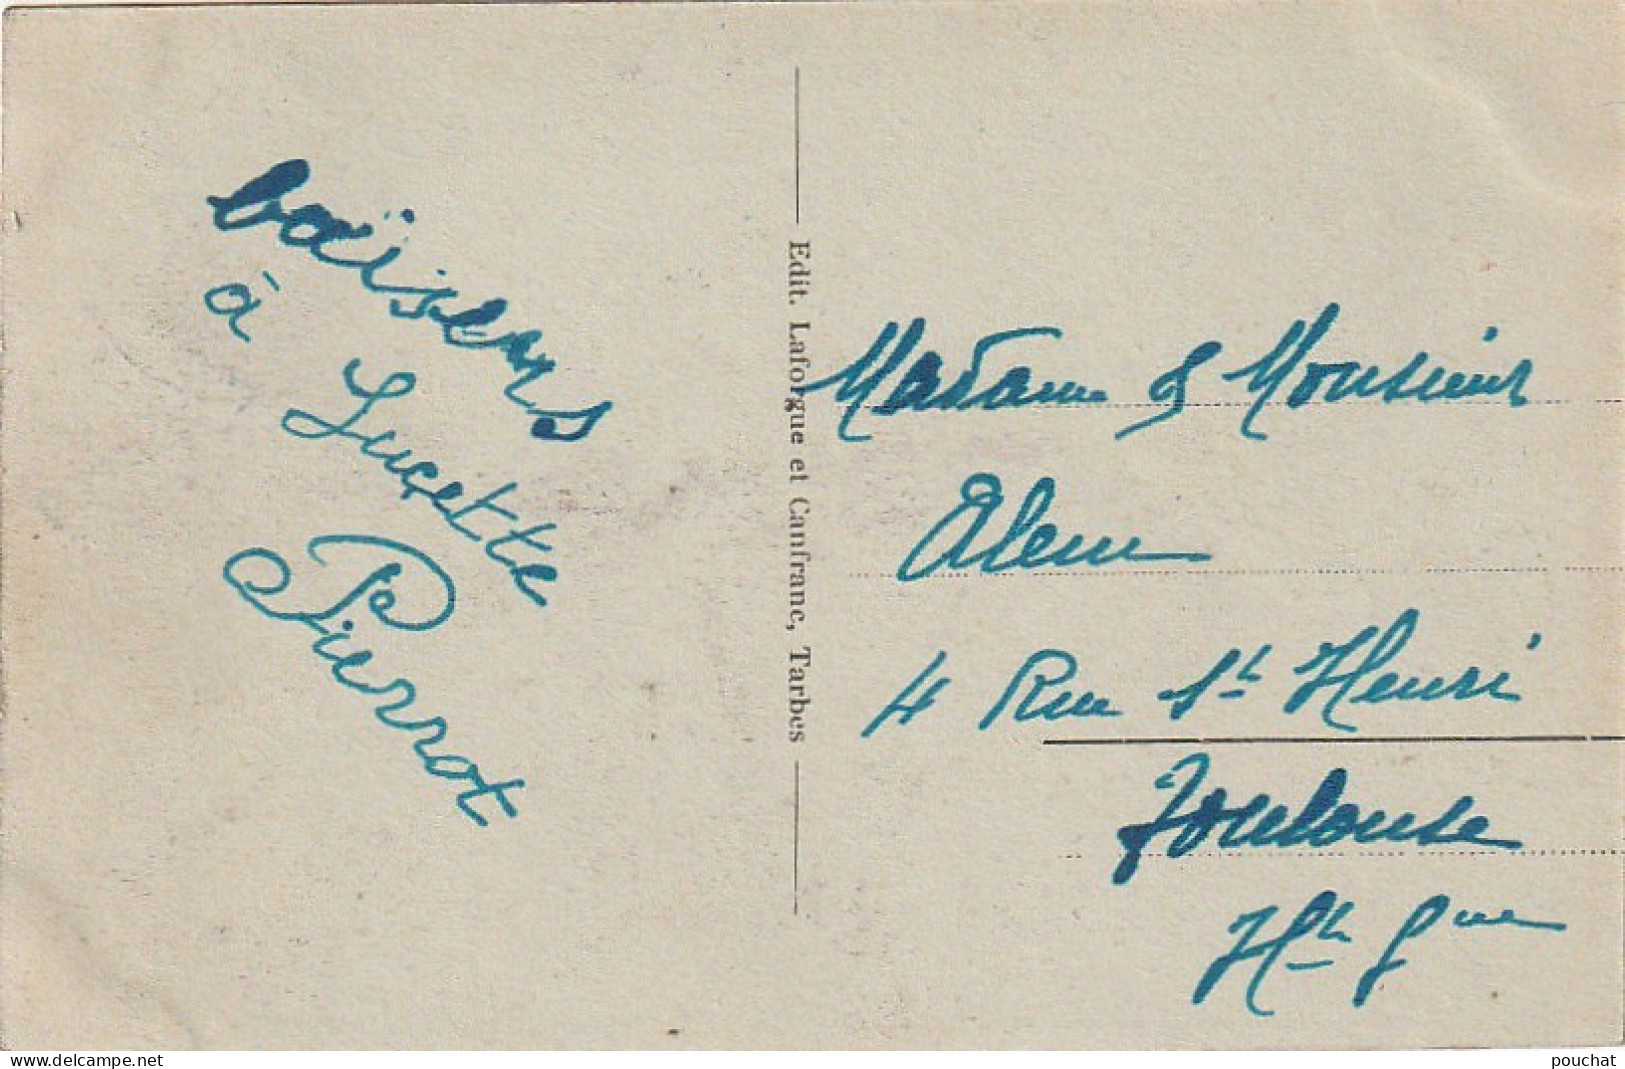 baïsers
à Lucette
Pierrot
Edit. Laforgue et Canfranc, Tarbes
Madame & Monsieur
Alem
4 Rue St Henri
Toulouse
Hte Gne
delcampe.net
pouchat